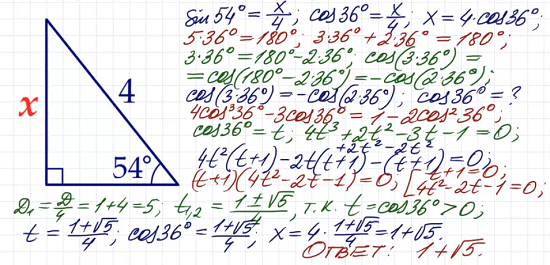 sin 54° = x/4; cos 36° = x/4; x = 4·cos 36°;
5·36° = 180°; 3·36° + 2·36° = 180°;
3·36° = 180° − 2·36°; cos(3·36°) =
= cos(180° − 2·36°) = −cos(2·36°);
cos(3·36°) = −cos(2·36°); cos 36° = ?
4cos³36° − 3cos36° = 1 − 2cos²36°;
cos36° = t; 4t³ + 2t² − 3t − 1 = 0;
+2t² − 2t²
4t²(t+1) − 2t(t+1) − (t+1) = 0;
(t+1)(4t² − 2t − 1) = 0; [ t+1 = 0;
4t² − 2t − 1 = 0;
x
4
54°
D₁ = D/4 = 1+4 = 5; t₁,₂ = (1±√5)/4, т.к. t = cos36° > 0;
t = (1+√5)/4; cos36° = (1+√5)/4; x = 4·(1+√5)/4 = 1+√5.
Ответ: 1+√5.